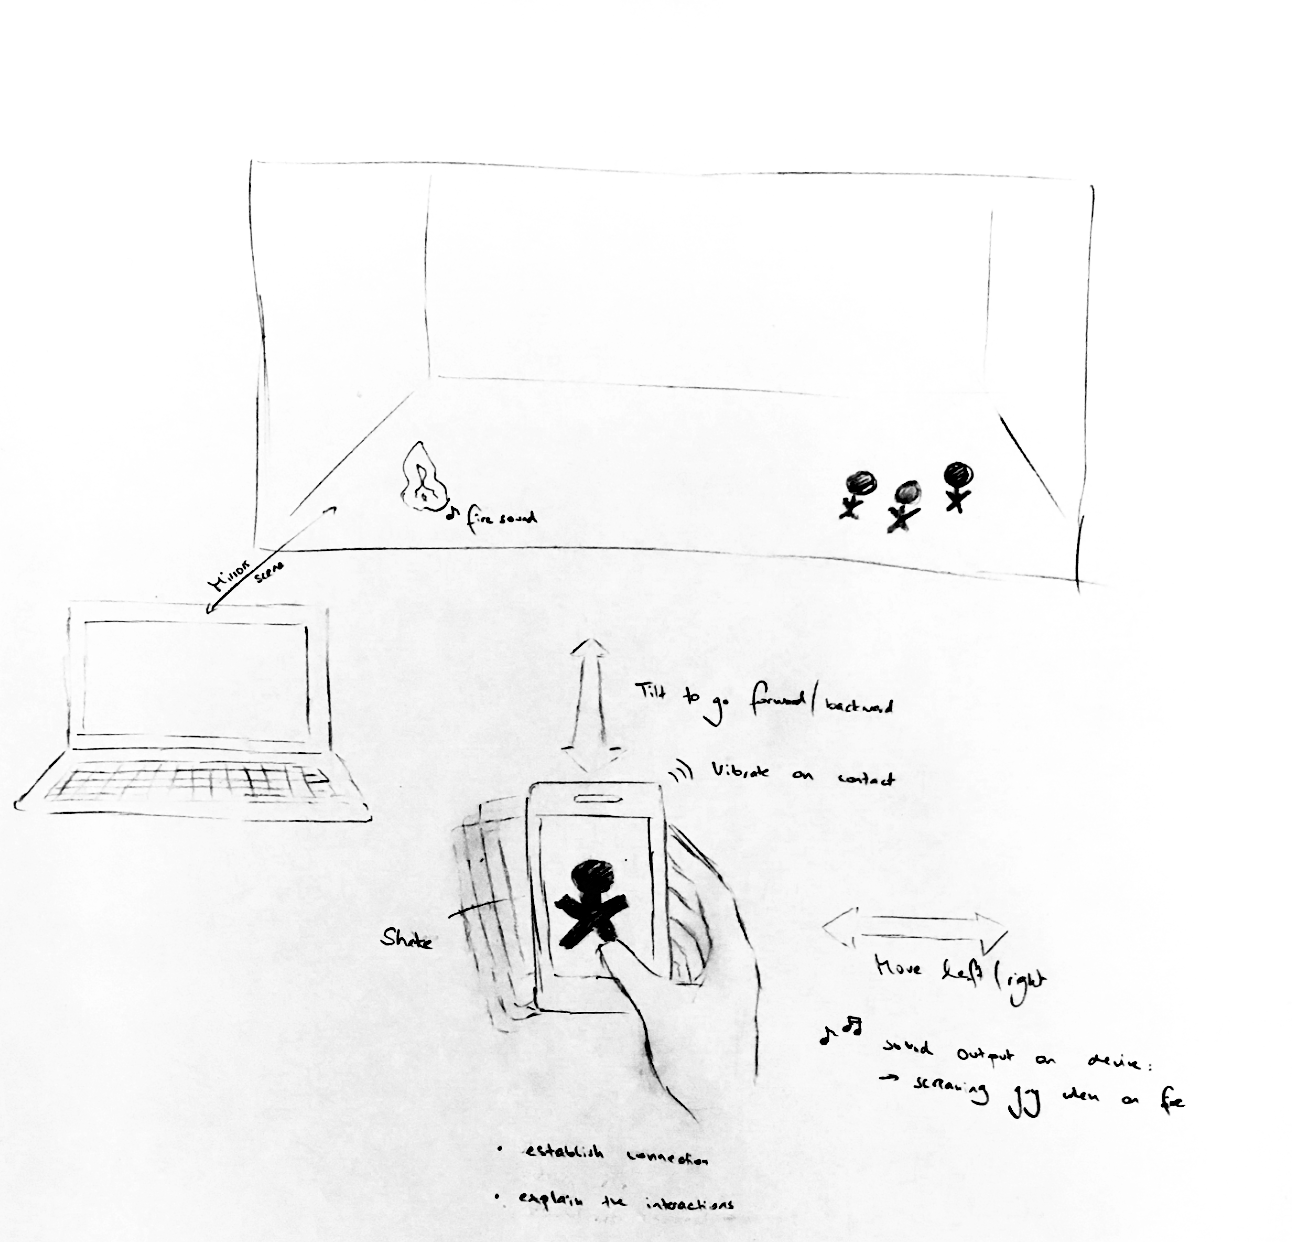 fire sound
Mirror
scene
Tilt to go forward/backward
Vibrate on contact
Shake
Move left/right
sound output on device:
→ screaming guy when on fire
• establish connection
• explain the interactions